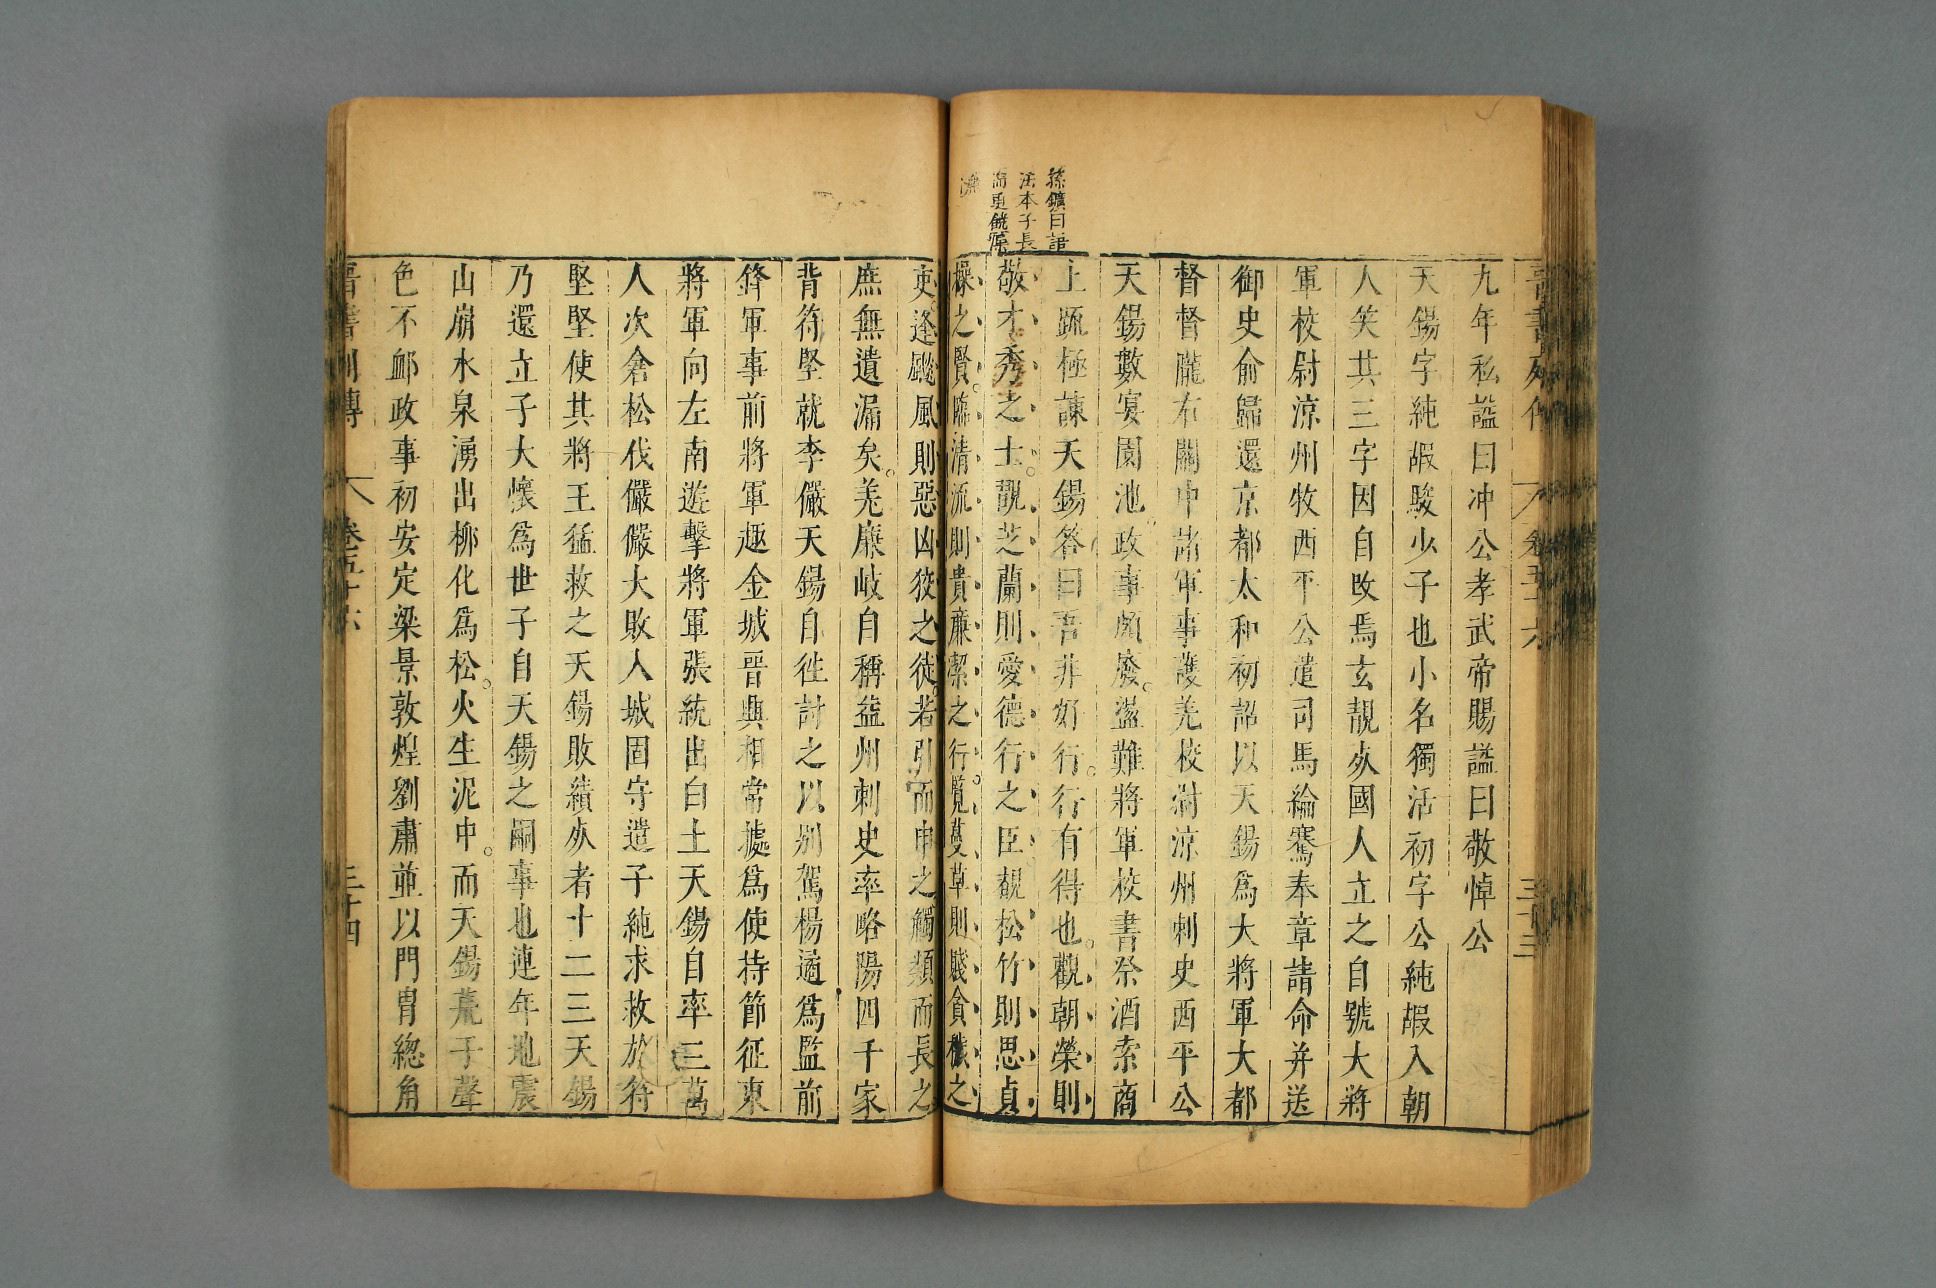 孫鑛曰語
法本子長
而更饒
九年私謚曰沖公孝武帝賜謚曰敬悼公
天錫字純嘏駿少子也小名獨活初字公純嘏入朝
人笑其三字因自改焉玄靚死國人立之自號大將
軍校尉涼州牧西平公遣司馬綸騫奉章請命并送
御史俞歸還京都太和初詔以天錫爲大將軍大都
督督隴右關中諸軍事護羌校尉涼州刺史西平公
天錫數宴園池政事頗廢盪難將軍校書祭酒索商
上疏極諫天錫答曰吾非好行行有得也觀朝榮則
敬才秀之士翫芝蘭則愛德行之臣覩松竹則思貞
操之賢臨清流則貴廉潔之行覽蔓草則賤貪穢之
吏逢飈風則惡凶狡之徒若引而申之觸類而長之
庶無遺漏矣羌廉岐自稱益州刺史率略陽四千家
背苻堅就李儼天錫自往討之以别駕楊遹爲監前
鋒軍事前將軍趣金城晉興相常據爲使持節征東
將軍向左南遊擊將軍張統出白土天錫自率三萬
人次倉松伐儼儼大敗入城固守遣子純求救於苻
堅堅使其將王猛救之天錫敗績死者十二三天錫
乃還立子大懷爲世子自天錫之嗣事也連年地震
山崩水泉湧出柳化爲松火生泥中而天錫荒于聲
色不邺政事初安定梁景敦煌劉肅並以門胄總角
晉書列傳 卷五十六 三十四